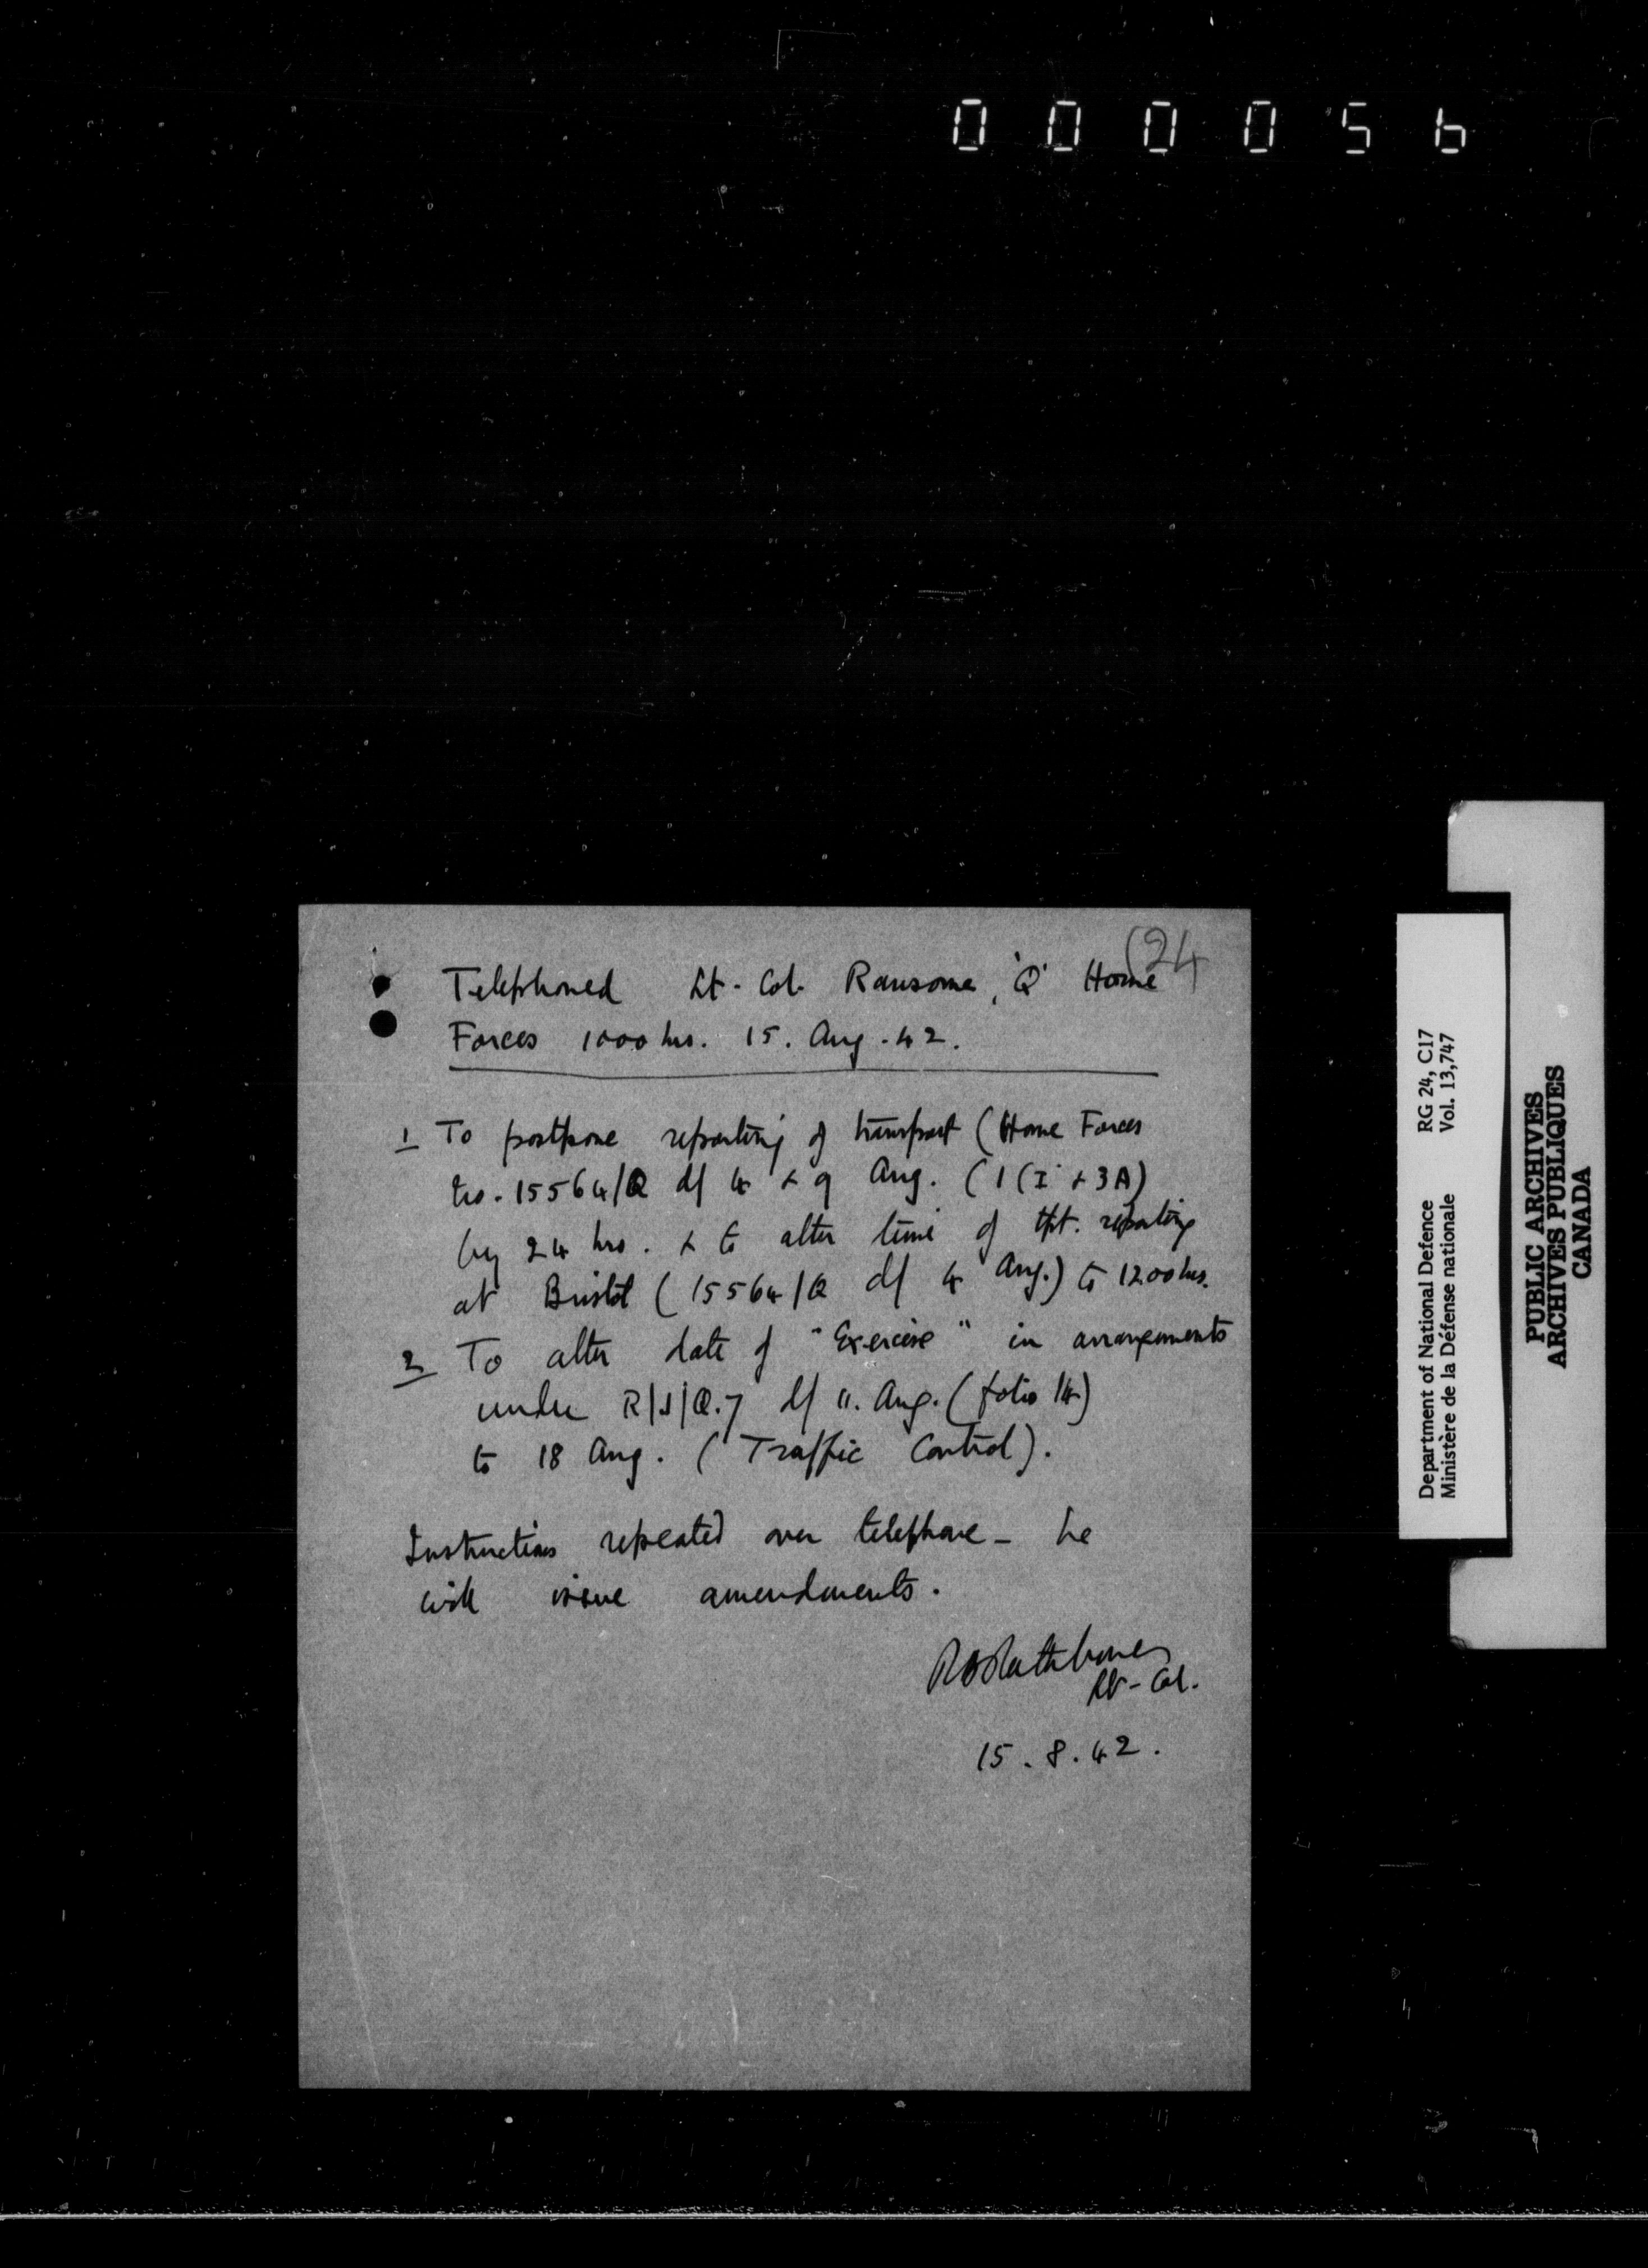 000056
(24
Telephoned Lt-Col. Ransome, 'Q' Home
Forces 1000 hrs. 15. Aug. 42.
1 To postpone reporting of transport (Home Forces
No. 15564/Q d/ 4 & 9 Aug. (1(I & 3A)
by 24 hrs. & to alter time of tpt. reporting
at Bristol (15564/Q d/ 4 Aug.) to 1200 hrs.
2 To alter date of "Exercise" in arrangements
under R/J/Q.7 d/ 11. Aug. (folio 14)
to 18 Aug. (Traffic Control).
Instructions repeated over telephone - he
will issue amendments.
Rathbone
Lt-Col.
15.8.42.
Department of National Defence RG 24, C17
Ministère de la Défense nationale Vol. 13,747
PUBLIC ARCHIVES
ARCHIVES PUBLIQUES
CANADA